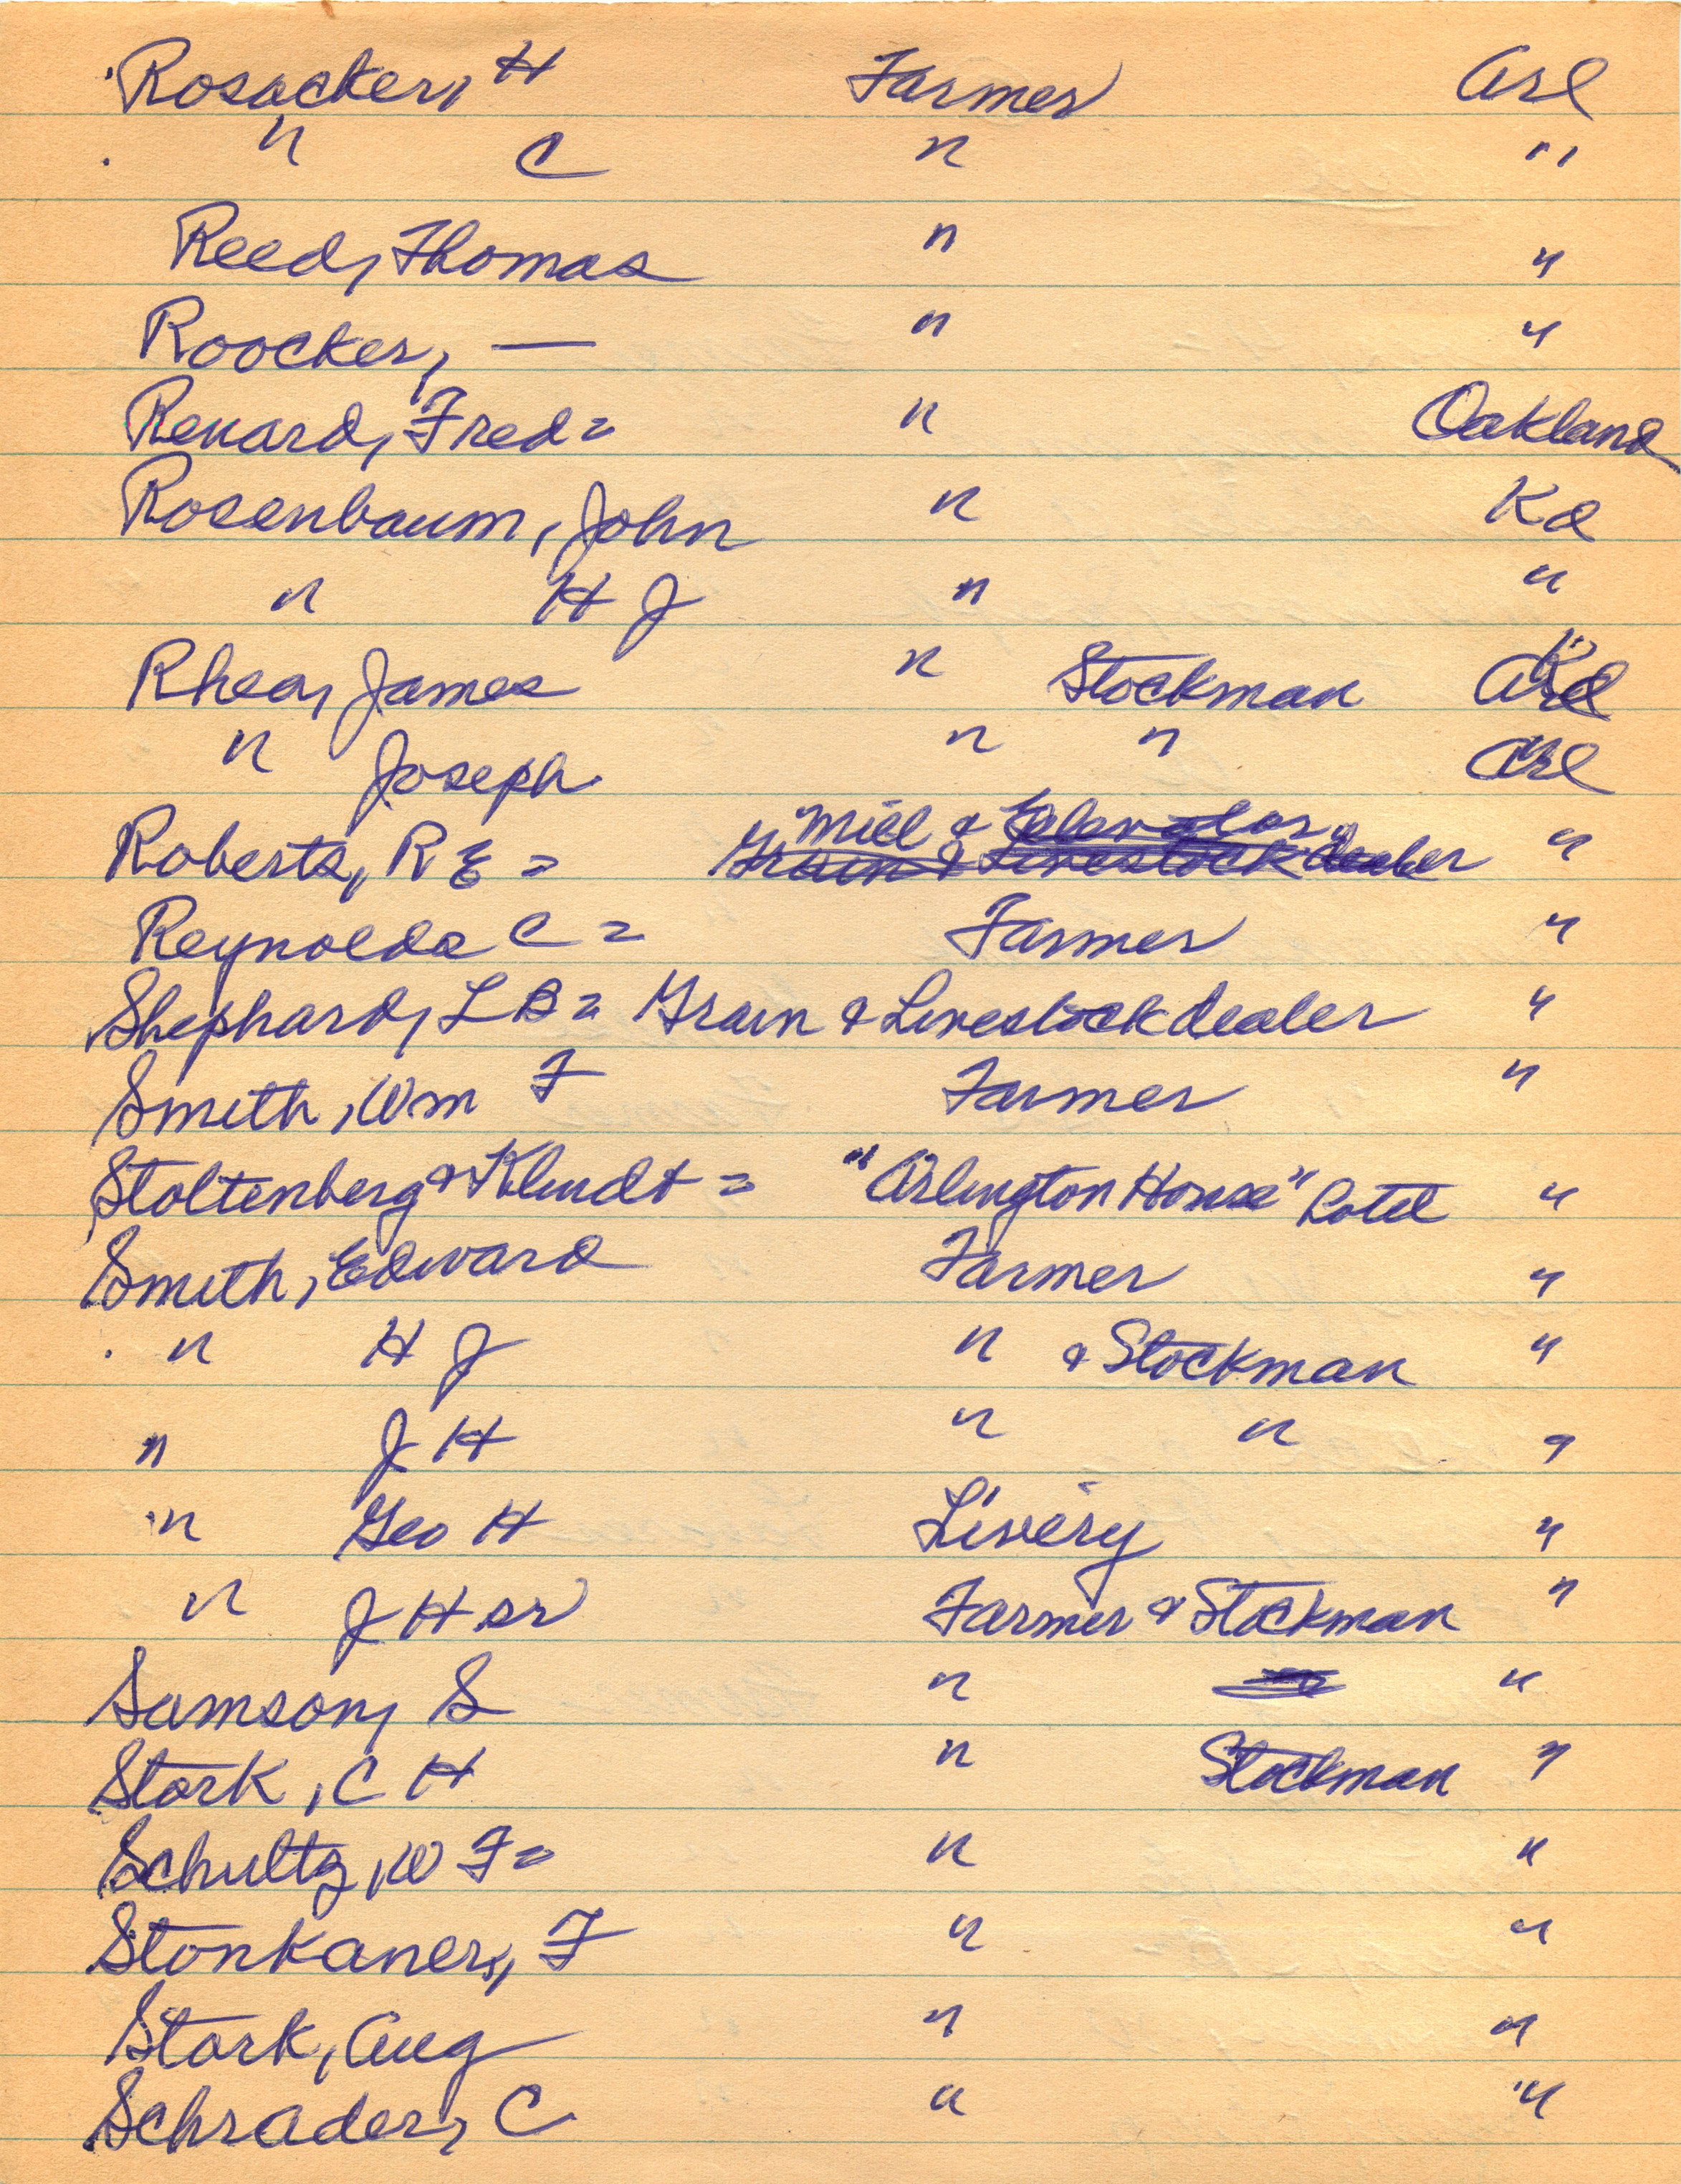 Rosacker, H Farmer Arl
" C " "
Reed, Thomas " "
Roocker, — " "
Renard, Fred = " Oakland
Rosenbaum, John " Kd
" H J " "
Rhea, James " Stockman Arl
" Joseph " " Arl
"Mill & Elevator"
Roberts, R E = Grain & Livestock dealer "
Reynolds C = Farmer "
Shephard, L B = Grain & Livestock dealer "
Smith, Wm F Farmer "
Stoltenberg & Klundt = "Arlington House" hotel "
Smith, Edward Farmer "
" H J " & Stockman "
" J H " " "
" Geo H Livery "
" J H sr Farmer & Stockman "
Samson, S " "
Stork, C H " Stockman "
Schultz, W F = " "
Stonkaner, F " "
Stork, Aug " "
Schrader, C " "